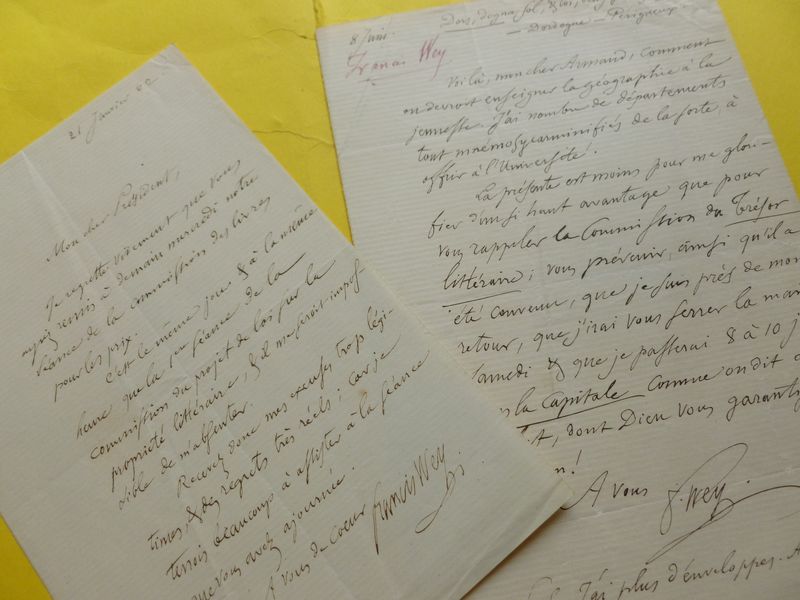 21 Janvier 62
Mon cher Président,
Je regrette vivement que vous
ayiez remis à demain mercredi notre
séance de la commission des livres
pour les prix.
C'est le même jour & à la même
heure que la séance de la
commission du projet de loi sur la
propriété littéraire, & il me serait impos
sible de m'absenter.
Recevez donc mes excuses trop légi-
times, & des regrets très réels; car je
tenois beaucoup à assister à la séance
que vous avez ajournée.
A vous de coeur
Francis Wey
8 Juin.
Francis Wey
Dordogne — Périgueux
Voilà, mon cher Armand, comment
on devroit enseigner la géographie à la
jeunesse. J'ai nombre de départements
tout mnémosycarminifiés de la sorte, à
offrir à l'Université.
La présente est moins pour me glori-
fier d'un si haut avantage que pour
vous rappeler la Commission du Trésor
littéraire; vous prévenir, ainsi qu'il a
été convenu, que je suis près de mon
retour, que j'irai vous serrer la main
samedi & que je passerai 8 à 10 j
la Capitale comme on dit
dont Dieu vous garantisse
A vous F. Wey
J'ai plus d'enveloppes.